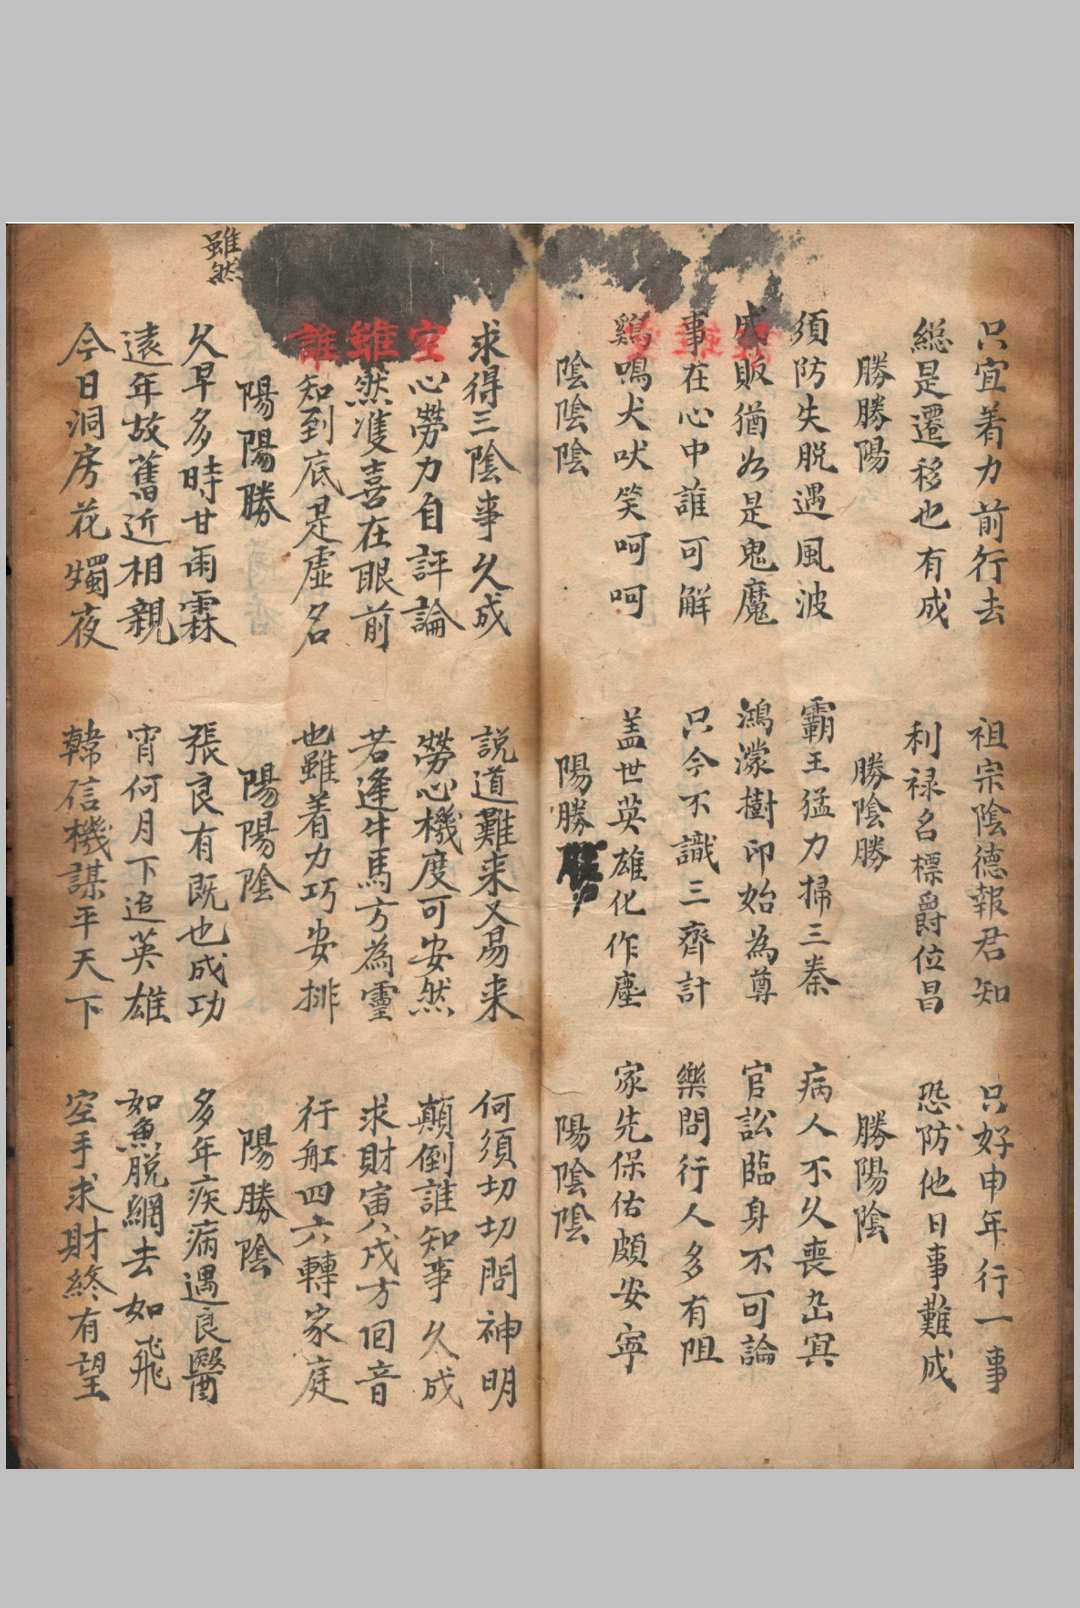 只宜着力前行去 祖宗陰德報君知 只好申年行一事
総是遷移也有成 利禄名標爵位昌 恐防他日事難成
勝勝陽 勝陰勝 勝陽陰
須防失脱遇風波 霸王猛力掃三秦 病人不久喪幽冥
成敗猶如是鬼魔 鴻濛樹印始為尊 官訟臨身不可論
事在心中誰可解 只今不識三齊計 樂問行人多有阻
鷄鳴犬吠笑呵呵 盖世英雄化作塵 家先保佑頗安寧
陰陰陰 陽勝 陽陰陰
求得三陰事久成 説道難来又易来 何須切切問神明
空心勞力自評論 勞心機度可安然 顛倒誰知事久成
雖然隻喜在眼前 若逢牛馬方為靈 求財寅戌方回音
誰知到底是虛名 也雖着力巧安排 行船四六轉家庭
陽陽勝 陽陽陰 陽勝陰
雖然
久旱多時甘雨霖 張良有既也成功 多年疾病遇良醫
遠年故舊近相親 宵何月下追英雄 如魚脱網去如飛
今日洞房花燭夜 韓信機謀平天下 空手求財終有望